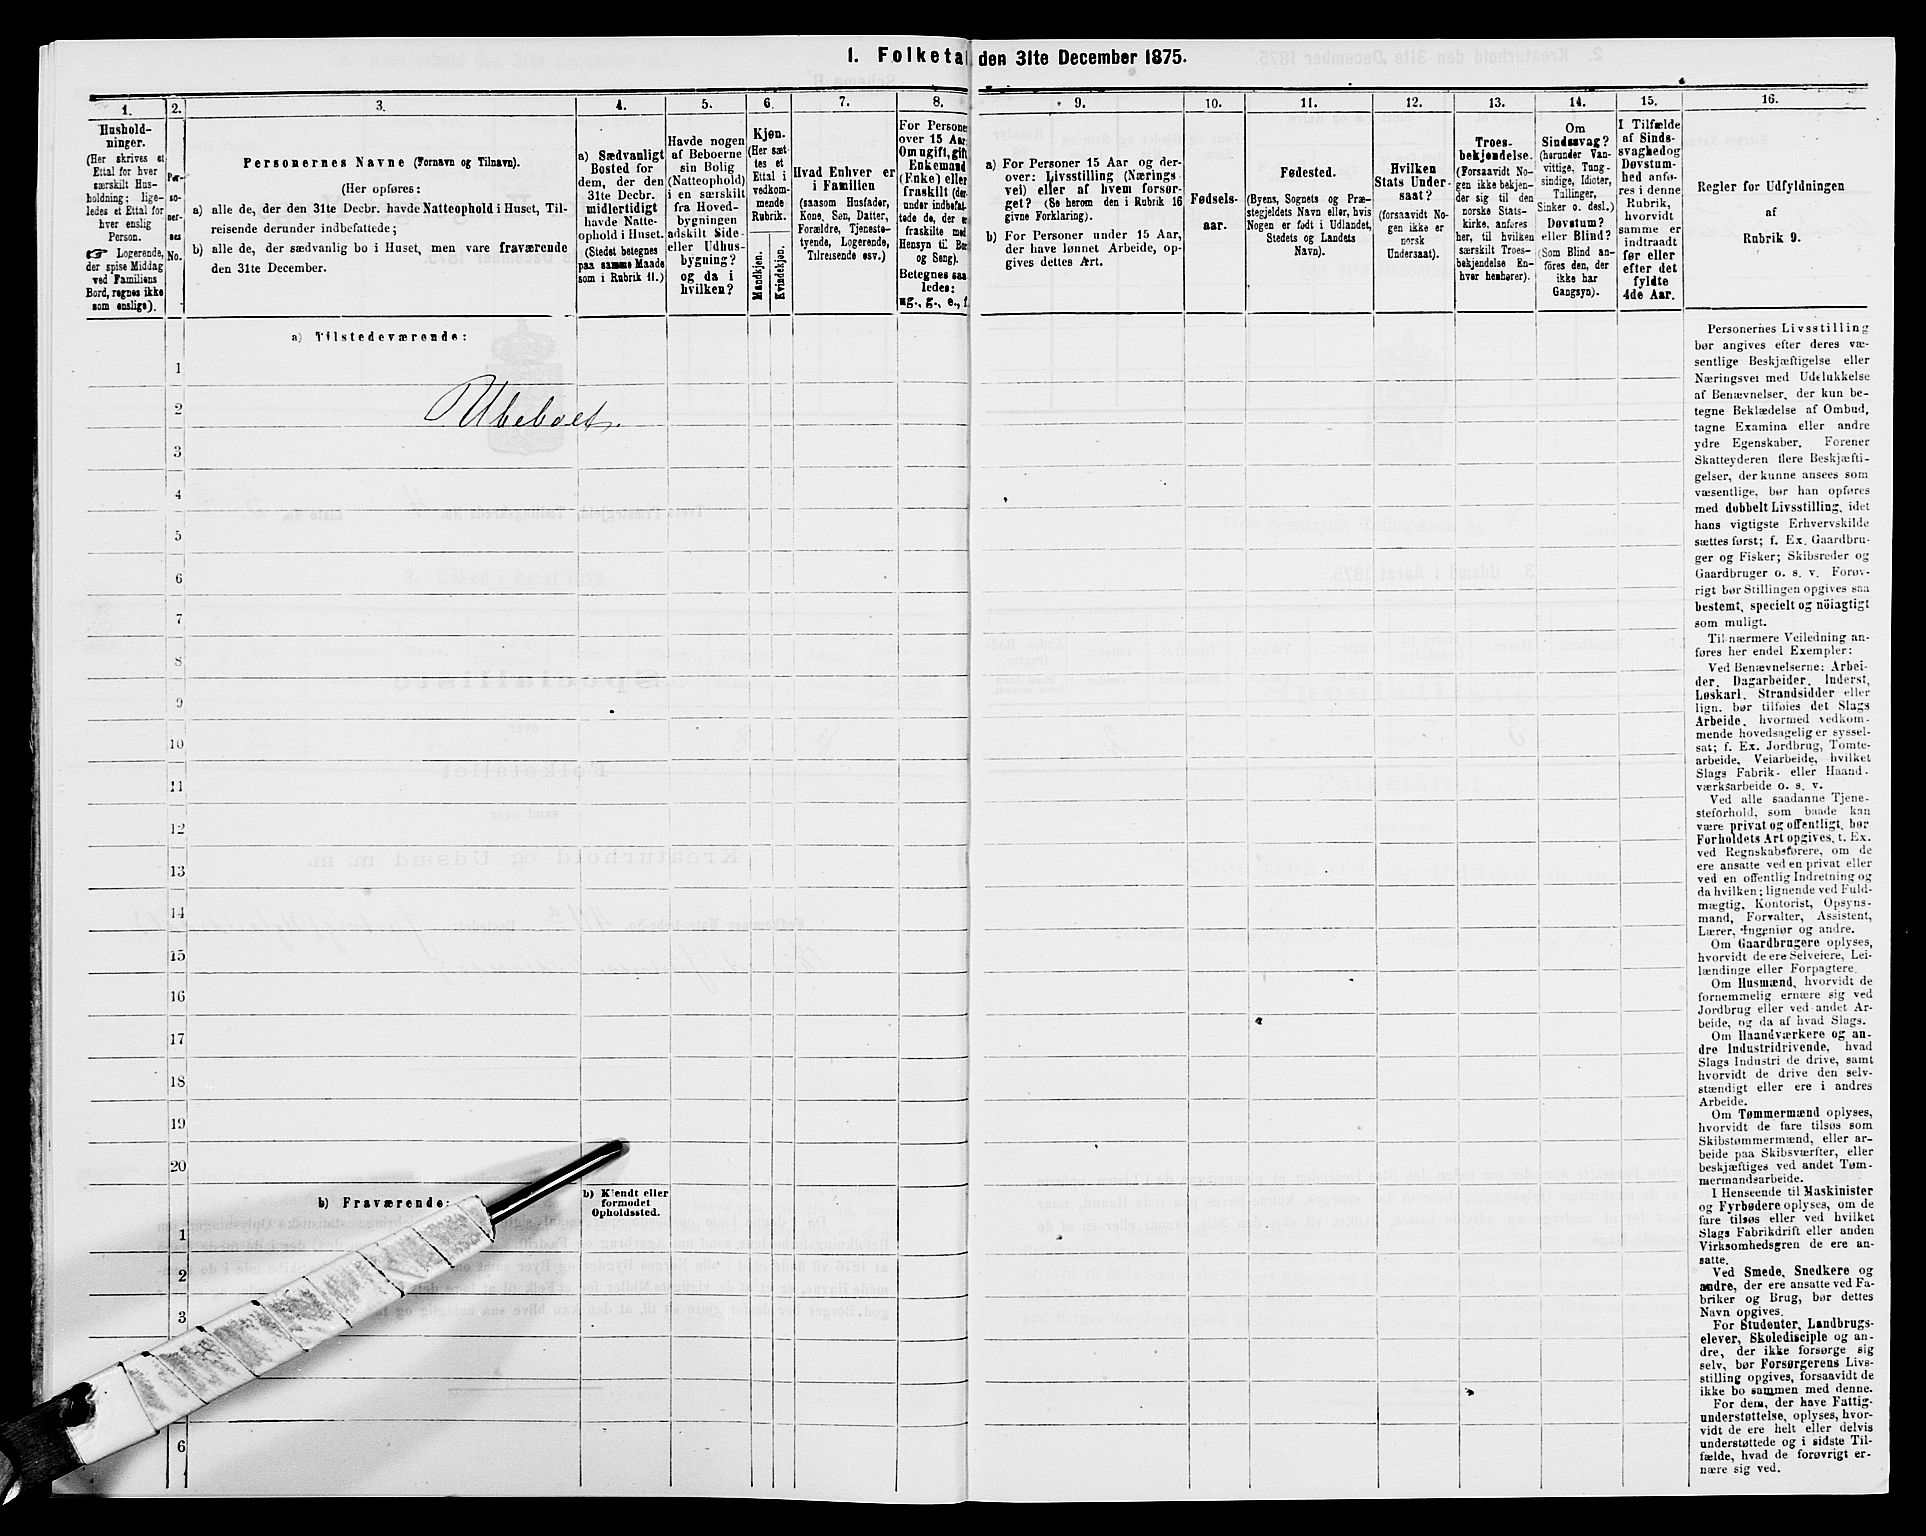 1. Folketal den 31te December 1875.
1.
Hushold-
ninger.
(Her skrives et
Ettal for hver
særskilt Hus-
holdning; lige-
ledes et Ettal for
hver enslig
Person.
☞ Logerende,
der spise Middag
ved Familiens
Bord, regnes ikke
som enslige).
2.
Per-
so-
ner-
nes
No.
3.
Personernes Navne (Fornavn og Tilnavn).
(Her opføres:
a) alle de, der den 31te Decbr. havde Natteophold i Huset, Til-
reisende derunder indbefattede;
b) alle de, der sædvanlig bo i Huset, men vare fraværende
den 31te December.
4.
a) Sædvanligt
Bosted for
dem, der den
31te Decbr.
midlertidigt
havde Natte-
ophold i Huset.
(Stedet betegnes
paa samme Maade
som i Rubrik 11.)
5.
Havde nogen
af Beboerne
sin Bolig
(Natteophold)
i en særskilt
fra Hoved-
bygningen
adskilt Side-
eller Udhus-
bygning?
og da i
hvilken?
6.
Kjøn.
(Her sæt-
tes et
Ettal i
vedkom-
mende
Rubrik.
Mandkjøn.
Kvindekjøn.
7.
Hvad Enhver er
i Familien
(saasom Husfader,
Kone, Søn, Datter,
Forældre, Tjeneste-
tyende, Logerende,
Tilreisende osv.)
8.
For Personer
over 15 Aar:
Om ugift, gift,
Enkemand
(Enke) eller
fraskilt (der-
under indbefat-
tede de, der er
fraskilte med
Hensyn til Bord
og Seng).
Betegnes saa-
ledes:
ug., g., e., f.
9.
a) For Personer 15 Aar og der-
over: Livsstilling (Nærings-
vei) eller af hvem forsør-
get? (Se herom den i Rubrik 16
givne Forklaring).
b) For Personer under 15 Aar,
der have lønnet Arbeide, op-
gives dettes Art.
10.
Fødsels-
aar.
11.
Fødested.
(Byens, Sognets og Præ-
stegjeldets Navn eller, hvis
Nogen er født i Udlandet,
Stedets og Landets
Navn).
12.
Hvilken
Stats Under-
saat?
(forsaavidt No-
gen ikke er
norsk
Undersaat).
13.
Troes-
bekjendelse.
(Forsaavidt No-
gen ikke bekjen-
der sig til den
norske Stats-
kirke, anføres
her, til hvilken
særskilt Troes-
bekjendelse En-
hver henhører).
14.
Om
Sindssvag?
(herunder Van-
vittige, Tung-
sindige, Idioter,
Tullinger,
Sinker o. desl.)
Døvstum?
eller Blind?
(Som Blind an-
føres den, der
ikke har
Gangsyn).
15.
I Tilfælde
af Sinds-
svaghed og
Døvstum-
hed anfø-
res i denne
Rubrik,
hvorvidt
samme er
indtraadt
før eller
efter det
fyldte
4de Aar.
16.
Regler for Udfyldningen
af
Rubrik 9.
a) Tilstedeværende:
1
Ubeboet.
2
3
4
5
6
7
8
9
10
11
12
13
14
15
16
17
18
19
20
b) Fraværende:
b) Kjendt eller
formodet
Opholdssted.
1
2
3
6
Personernes Livsstilling
bør angives efter deres væ-
sentlige Beskjæftigelse eller
Næringsvei med Udelukkelse
af Benævnelser, der kun be-
tegne Beklædelse af Ombud,
tagne Examina eller andre
ydre Egenskaber. Forener
Skatteyderen flere Beskjæfti-
gelser, der kunne ansees som
væsentlige, bør han opføres
med dobbelt Livsstilling, idet
hans vigtigste Erhvervskilde
sættes først; f. Ex. Gaardbru-
ger og Fisker; Skibsreder og
Gaardbruger o. s. v. Forøv-
rigt bør Stillingen opgives saa
bestemt, specielt og nöiagtigt
som muligt.
Til nærmere Veiledning an-
føres her endel Exempler:
Ved Benævnelserne: Arbei-
der, Dagarbeider, Inderst,
Løskarl, Strandsidder eller
lign. bør tilføies det Slags
Arbeide, hvormed vedkom-
mende hovedsagelig er syssel-
sat; f. Ex. Jordbrug, Tomte-
arbeide, Veiarbeide, hvilket
Slags Fabrik- eller Haand-
værksarbeide o. s. v.
Ved alle saadanne Tjene-
steforhold, som baade kan
være privat og offentligt, bør
Forholdets Art opgives, t. Ex.
ved Regnskabsførere, om de
ere ansatte ved en privat eller
ved en offentlig Indretning og
da hvilken; lignende ved Fuld-
mægtig, Kontorist, Opsyns-
mand, Forvalter, Assistent,
Lærer, Ingeniør og andre.
Om Gaardbrugere oplyses,
hvorvidt de ere Selveiere, Lei-
lændinge eller Forpagtere.
Om Husmænd, hvorvidt de
fornemmelig ernære sig ved
Jordbrug eller ved andet Ar-
beide, og da af hvad Slags.
Om Haandværkere og an-
dre Industridrivende, hvad
Slags Industri de drive, samt
hvorvidt de drive den selv-
stændigt eller ere i andres
Arbeide.
Om Tømmermænd oplyses,
hvorvidt de fare tilsøs som
Skibstømmermænd, eller ar-
beide paa Skibsværfter, eller
beskjæftiges ved andet Tøm-
mermandsarbeide.
I Henseende til Maskinister
og Fyrbødere oplyses, om de
fare tilsøs eller ved hvilket
Slags Fabrikdrift eller anden
Virksomhedsgren de ere an-
satte.
Ved Smede, Snedkere og
andre, der ere ansatte ved Fa-
briker og Brug, bør dettes
Navn opgives.
For Studenter, Landbrugs-
elever, Skoledisciple og an-
dre, der ikke forsørge sig
selv, bør Forsørgerens Livs-
stilling opgives, forsaavidt de
ikke bo sammen med denne.
For dem, der have Fattig-
understøttelse, oplyses, hvor-
vidt de ere helt eller delvis
understøttede og i sidste Til-
fælde, hvad de forøvrigt er-
nære sig ved.